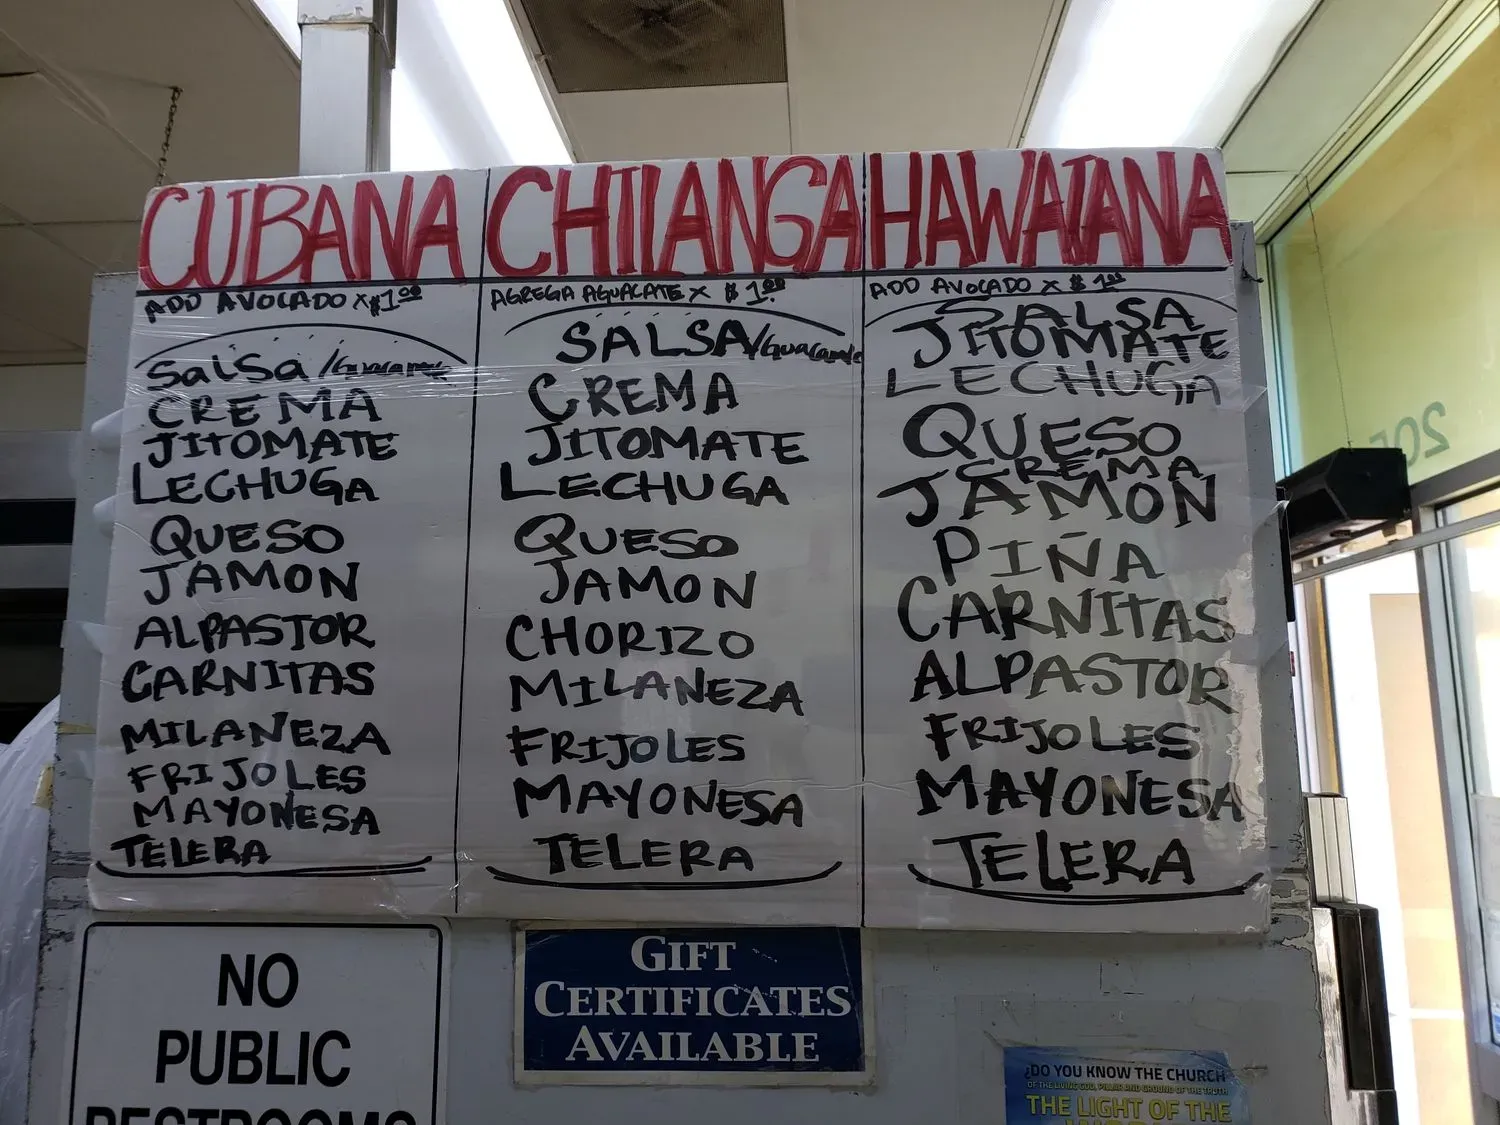 CUBANA
ADD AVOCADO x $1.00
Salsa /Guacamole
CREMA
JITOMATE
LECHUGA
QUESO
JAMON
ALPASTOR
CARNITAS
MILANEZA
FRIJOLES
MAYONESA
TELERA
CHILANGA
AGREGA AGUACATE x $1.00
SALSA/Guacamole
CREMA
JITOMATE
LECHUGA
QUESO
JAMON
CHORIZO
MILANEZA
FRIJOLES
MAYONESA
TELERA
HAWAIANA
ADD AVOCADO x $1.00
SALSA
JITOMATE
LECHUGA
QUESO
CREMA
JAMON
PIÑA
CARNITAS
ALPASTOR
FRIJOLES
MAYONESA
TELERA
NO
PUBLIC
RESTROOMS
GIFT
CERTIFICATES
AVAILABLE
¿DO YOU KNOW THE CHURCH
OF THE LIVING GOD, PILLAR AND GROUND OF THE TRUTH
THE LIGHT OF THE